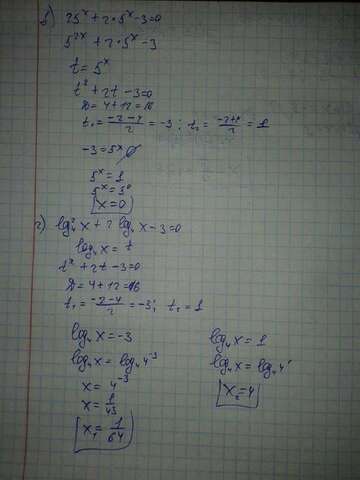 б) 25ˣ + 2·5ˣ - 3 = 0
5²ˣ + 2·5ˣ - 3
t = 5ˣ
t² + 2t - 3 = 0
D = 4 + 12 = 16
t₁ = (-2-4)/2 = -3; t₂ = (-2+4)/2 = 1
-3 = 5ˣ ∅
5ˣ = 1
5ˣ = 5⁰
x = 0
2) log²₄ x + 2 log₄ x - 3 = 0
log₄ x = t
t² + 2t - 3 = 0
D = 4 + 12 = 16
t₁ = (-2-4)/2 = -3; t₂ = 1
log₄ x = -3
log₄ x = log₄ 4⁻³
x = 4⁻³
x = 1/4³
x₁ = 1/64
log₄ x = 1
log₄ x = log₄ 4¹
x₂ = 4